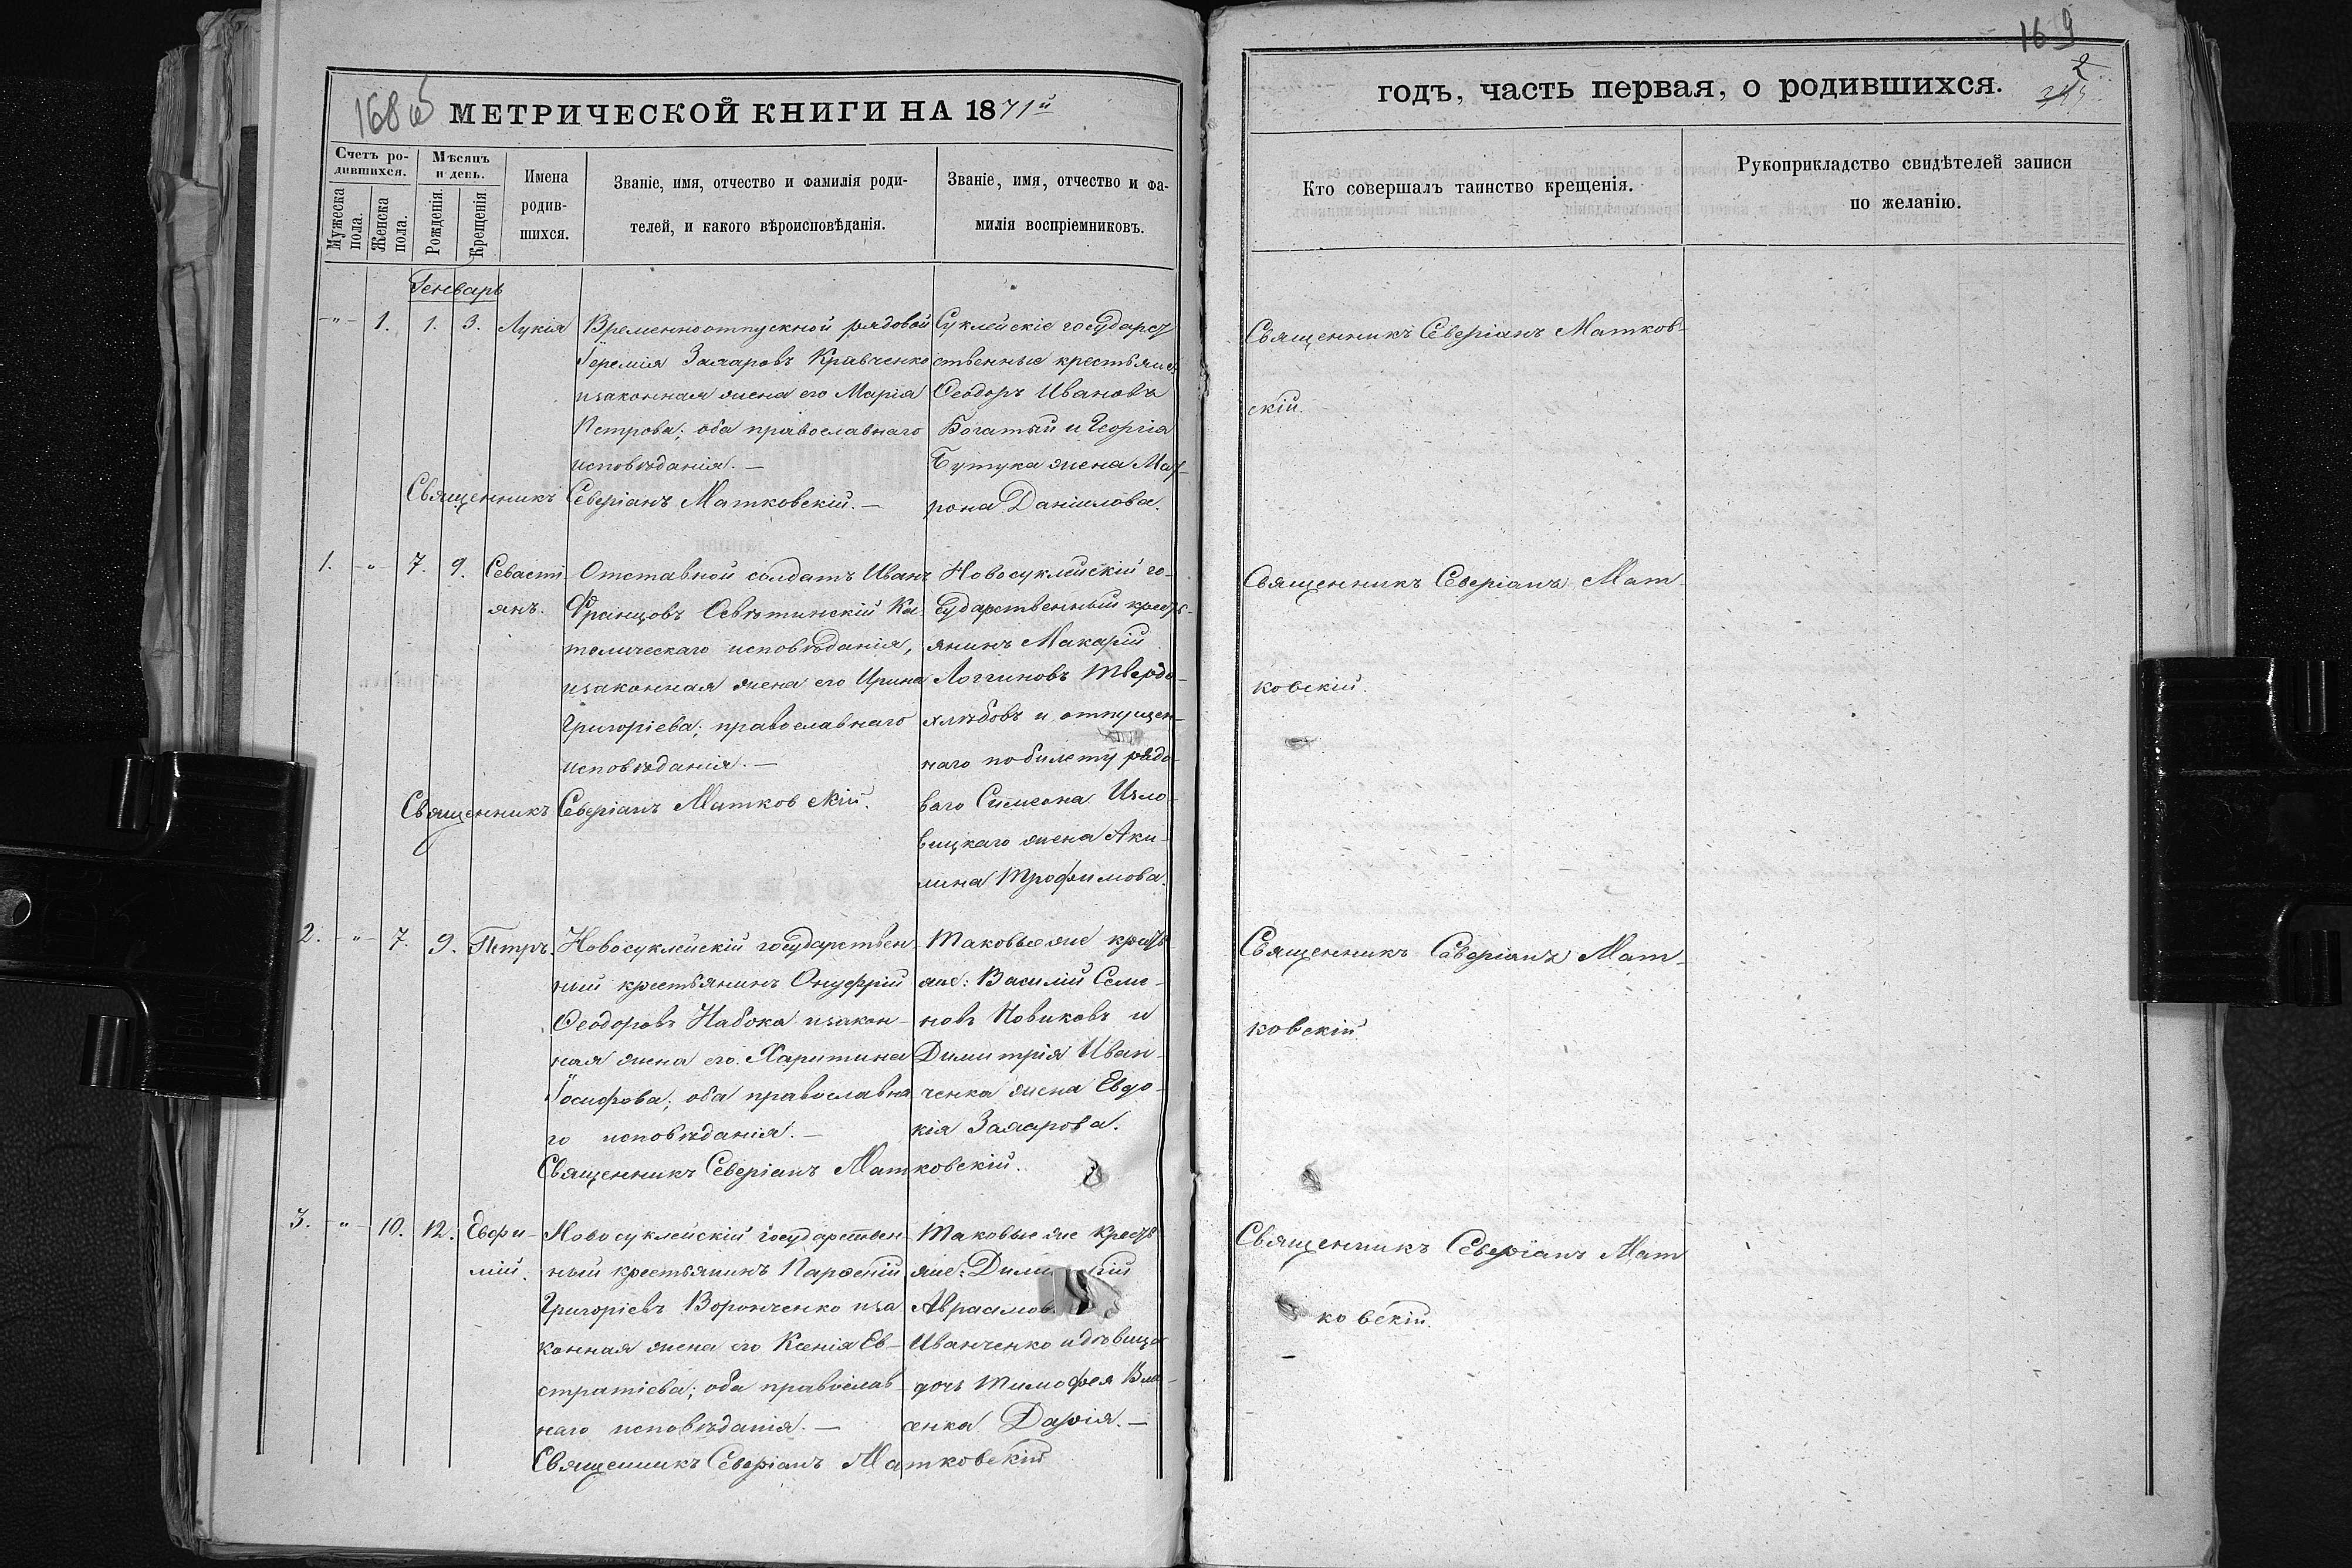 168 об
МЕТРИЧЕСКОЙ КНИГИ НА 1871й
Счетъ ро-
дившихся.
Мѣсяцъ
и день.
Мужеска
пола.
Женска
пола.
Рожденія.
Крещенія
Имена
родив-
шихся.
Званіе, имя, отчество и фамилія роди-
телей, и какого вѣроисповѣданія.
Званіе, имя, отчество и фа-
милія воспріемниковъ.
Генварь
-"- 1. 1. 3. Лукія
Временноотпускной рядовой
Іеремія Захаровъ Кравченко
изаконная жена его Марія
Петрова; оба православнаго
исповѣданія. —
Священникъ Северіанъ Матковскій. —
Суклейскіе государст
ственные крестьяне
Ѳеодоръ Ивановъ
Богатый и Георгія
Бутука жена Мат-
рона Даніилова.
1. -"- 7. 9. Севасті
янъ.
Отставной солдатъ Иванъ
Францовъ Освѣтинскій Ка-
толическаго исповѣданія,
изаконная жена его Ирина
Григоріева; православнаго
исповѣданія. —
Священникъ Северіанъ Матковскій.
Новосуклейскій го-
сударственный кресть-
янинъ Макарій
Логгиновъ Твердо-
хлѣбовъ и отпущен-
наго по билету рядо-
ваго Симеона
вицкаго жена Аки-
лина Трофимова.
2. -"- 7. 9. Петръ.
Новосуклейскій государствен-
ный крестьянинъ Онуфрій
Ѳеодоровъ Набока изакон-
ная жена его Харитина
Іосифова; оба православна
го исповѣданія. —
Священникъ Северіанъ Матковскій.
Таковые же кресть
яне: Василій Семе-
новъ Новиковъ и
Димитрія Иван-
ченка жена Евдо-
кія Захарова.
3. -"- 10. 12. Евфи-
мій.
Новосуклейскій государствен-
ный крестьянинъ Парѳеній
Григоріевъ Воронченко иза
конная жена его Ксенія Ев-
стратіева; оба православ-
наго исповѣданія. —
Священникъ Северіанъ Матковскій
Таковые же кресть
яне:
Авраамов
Иванченко и дѣвица
дочь Тимофея
сенка Дарія. —
169
2
годъ, часть первая, о родившихся.
Кто совершалъ таинство крещенія.
Рукоприкладство свидѣтелей записи
по желанію.
Священникъ Северіанъ Матков-
скій.
Священникъ Северіанъ Мат-
ковскій.
Священникъ Северіанъ Мат-
ковскій.
Священникъ Северіанъ Мат
ковскій.